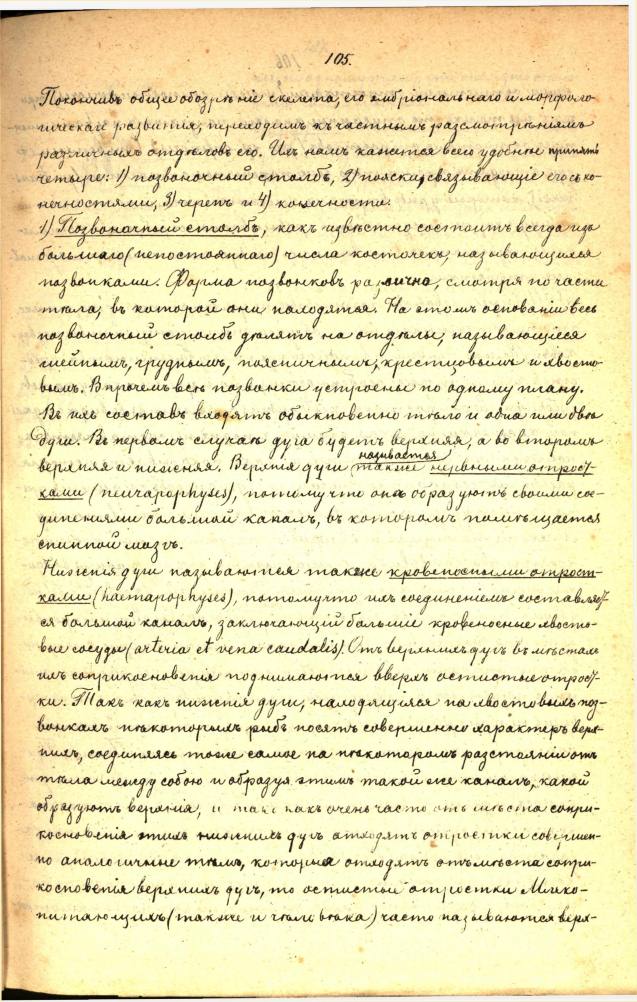 105.
Покончивъ общее обозрѣніе скелета, его эмбріональнаго и морфоло-
гическаго развитія, переходимъ къ частнымъ разсмотрѣніямъ
различныхъ отдѣловъ его. Ихъ намъ кажется всего удобнѣе принять
четыре: 1) позвоночный столбъ, 2) пояски, связывающіе его съ ко-
нечностями, 3) черепъ и 4) конечности.
1) Позвоночный столбъ, какъ извѣстно состоитъ всегда изъ
большаго (непостояннаго) числа косточекъ, называющихся
позвонками. Форма позвонковъ различна, смотря по части
тѣла, въ которой они находятся. На этомъ основаніи весь
позвоночный столбъ дѣлятъ на отдѣлы, называющіеся
шейнымъ, груднымъ, поясничнымъ, крестцовымъ и хвосто-
вымъ. Впрочемъ всѣ позвонки устроены по одному плану.
Въ ихъ составъ входятъ обыкновенно тѣло и одна или двѣ
дуги. Въ первомъ случаѣ дуга будетъ верхняя, а во второмъ
верхняя и нижняя. Верхнія дуги называются также нервными отрост-
ками (neurapophyses), потому что онѣ образуютъ своими сое-
диненіями большой каналъ, въ которомъ помѣщается
спинной мозгъ.
Нижнія дуги называются также кровеносными отрост-
ками (haemapophyses), потому что ихъ соединеніемъ составляет-
ся большой каналъ, заключающій большіе кровеносные хвосто-
вые сосуды (arteria et vena caudalis). Отъ верхнихъ дугъ въ мѣстахъ
ихъ соприкосновенія поднимаются вверхъ остистые отрост-
ки. Такъ какъ нижнія дуги, находящіяся на хвостовыхъ поз-
вонкахъ нѣкоторыхъ рыбъ носятъ совершенно характеръ верх-
нихъ, соединяясь тоже самое на нѣкоторомъ разстояніи отъ
тѣла между собою и образуя этимъ такой же каналъ, какой
образуютъ верхнія, и такъ какъ очень часто отъ мѣста сопри-
косновенія этихъ нижнихъ дугъ отходятъ отростки совершен-
но аналогичные тѣмъ, которые отходятъ отъ мѣста сопри-
косновенія верхнихъ дугъ, то остистые отростки Млеко-
питающихъ (также и человѣка) часто называются верх-